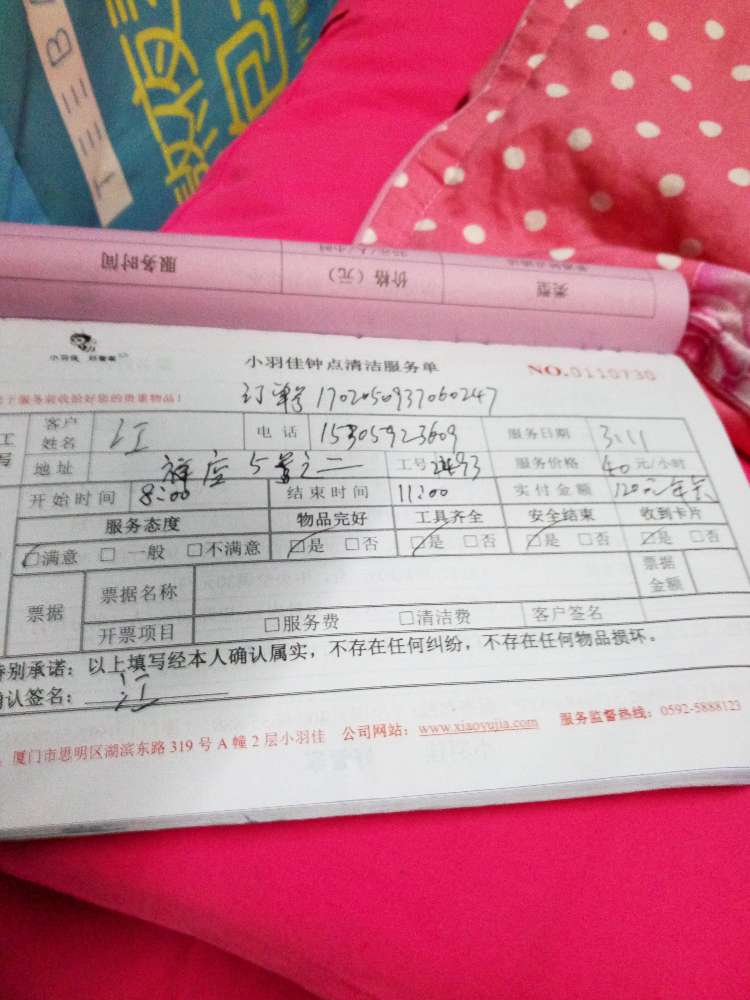 TEEB
服务时间 价格（元） 类型
小羽佳 好管家
小羽佳钟点清洁服务单 NO.0110730
服务前收拾好您的贵重物品！
订单号 170205093706 0247
客户姓名 江 电话 15305923609 服务日期 3.11
地址 5号之二 工号 服务价格 40 元/小时
开始时间 8:00 结束时间 11:00 实付金额 120元
服务态度 物品完好 工具齐全 安全结束 收到卡片
☑满意 □一般 □不满意 ☑是 □否 ☑是 □否 ☑是 □否 ☑是 □否
票据 票据名称 票据金额
开票项目 □服务费 □清洁费 客户签名
特别承诺：以上填写经本人确认属实，不存在任何纠纷，不存在任何物品损坏。
确认签名： 江
厦门市思明区湖滨东路 319 号 A 幢 2 层小羽佳 公司网站：www.xiaoyujia.com 服务监督热线：0592-5888123